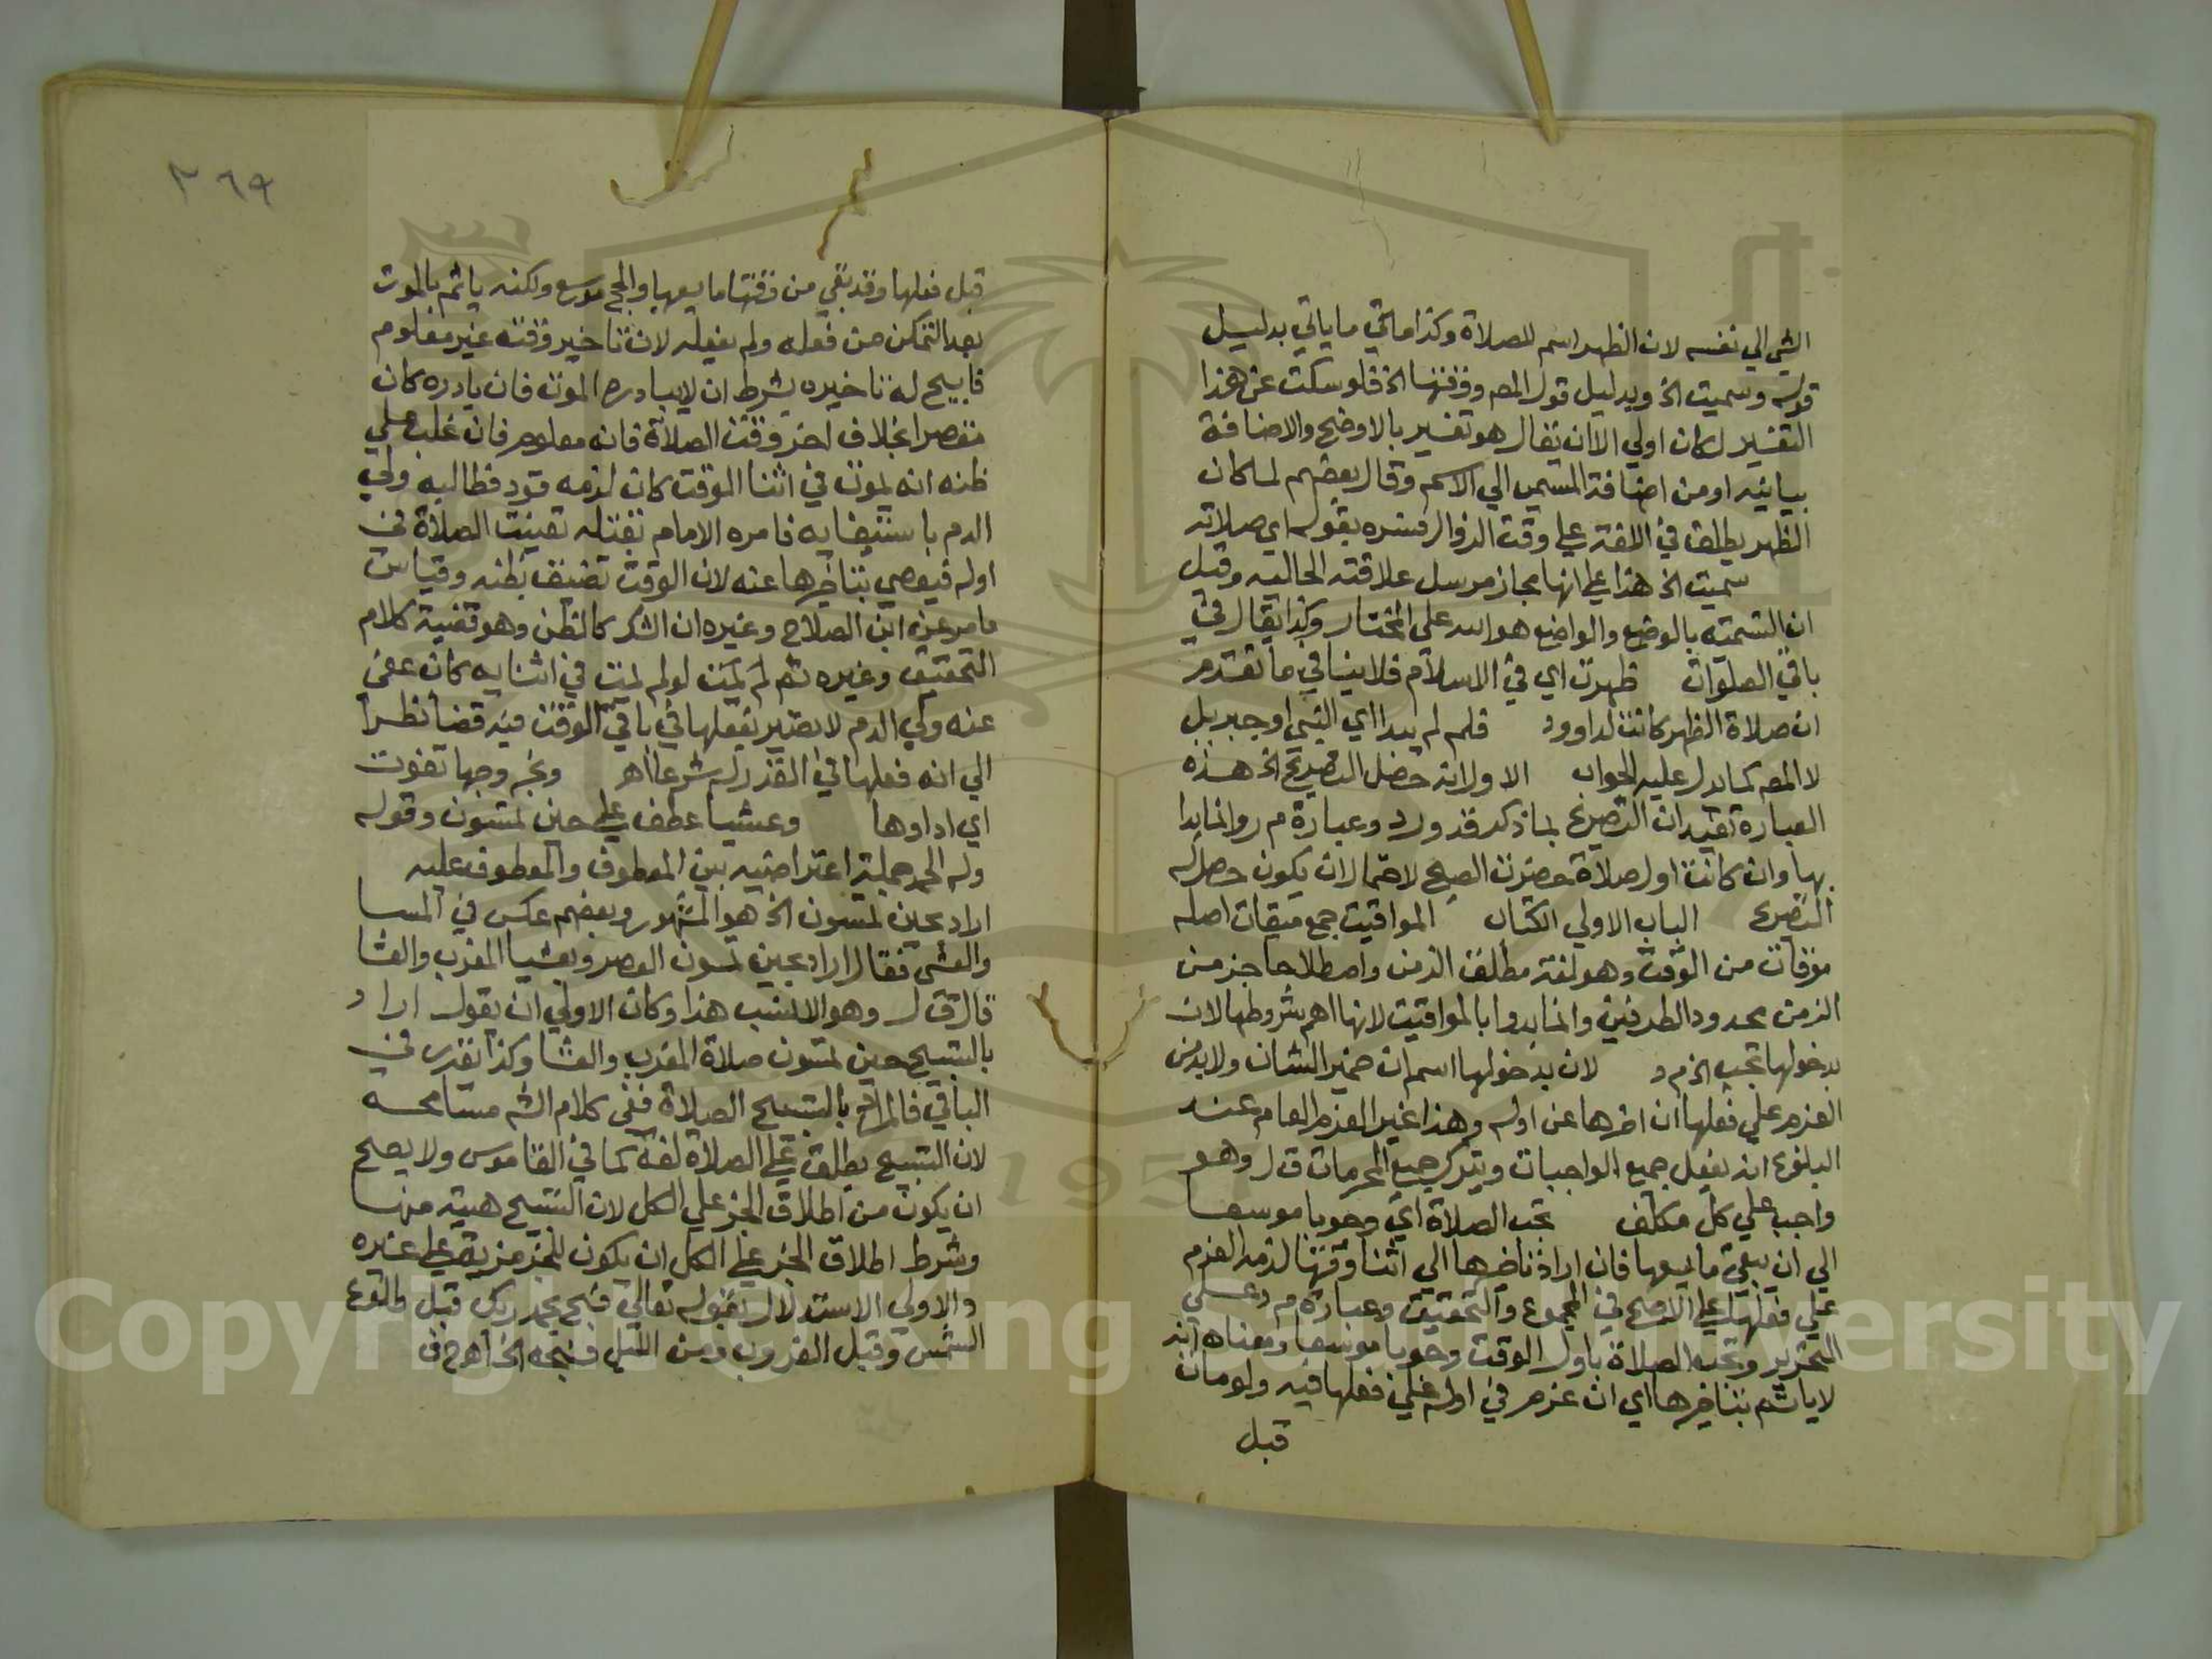 الشي الي نفسه لان الظهر اسم للصلاة وكذا ما في ما ياتي بدليل
قوله وسميت الخ وبدليل قول المصر ووقتها الخ فلو سكت عن هذا
التفسير لكان اولي الا ان يقال هو تفسير بالاوضح والاضافة
بيانيه او من اضافة المسمي الي الاسم وقال بعضهم لما كان
الظهر يطلق في اللغة علي وقت الزوال فسره بقوله اي صلاته
سميت الخ هذا علي انها مجاز مرسل علاقته الحاليه وقيل
ان التسمية بالوضع والواضع هو الله علي المختار وكذا يقال في
باقي الصلوات ظهرت اي في الاسلام فلا ينافي ما تقدم
ان صلاة الظهر كانت لداوود فلم لم يبدا اي النبي او جبريل
لا المصر كما يدل عليه الجواب الاول انه حصل التصريح الخ هذه
العبارة تفيد ان التصريح بما ذكر قد ورد وعبارة م ر وانما بدا
بها وان كانت اول صلاة حضرت الصبح لاحتمال ان يكون حصل له
التصريح الباب الاولي الكتاب المواقيت جمع ميقات اصله
موقات من الوقت وهو لغة مطلق الزمن واصطلاحا جز من
الزمن محدود الطرفين وانما بدوا بالمواقيت لانها اهم شروطها لان
بدخولها تجب الخ م ر لان بدخولها اسم ان ضمير الشان ولا بد من
العزم علي فعلها ان اخرها عن اوله وهذا غير العزم العام عند
البلوغ انه يفعل جميع الواجبات ويترك جميع المحرمات ق ل وهو
واجب علي كل مكلف تجب الصلاة اي وجوبا موسعا
الي ان يبقي ما يسعها فان اراد تاخيرها الي اثنا وقتها لزمه العزم
علي فعلها علي الاصح في المجموع والتحقيق وعبارة م ر علي
التحرير وتجب الصلاة باول الوقت وجوبا موسعا ومعناه انه
لا ياثم بتاخيرها اي ان عزم في اوله علي فعلها فيه ولو مات
قبل
٢٦٩
قبل فعلها وقد بقي من وقتها ما يسعها والحج موسع ولكنه ياثم بالموت
بعد التمكن من فعله ولم يفعله لان تاخير وقته غير معلوم
فابيح له تاخيره بشرط ان لا يبادره الموت فان بادره كان
مقصرا بخلاف اخر وقت الصلاة فانه معلوم فان غلب علي
ظنه انه يموت في اثنا الوقت كان لزمه قود فطالبه ولي
الدم باستيفايه فامره الامام بقتله تعينت الصلاة في
اوله فيعصي بتاخيرها عنه لان الوقت تضيق بظنه وقياس
ما مر عن ابن الصلاح وغيره ان الشك كالظن وهو قضية كلام
التحقيق وغيره ثم لم يمت لو لم يمت في اثنايه كان عفي
عنه ولي الدم لا تصير بفعلها في باقي الوقت فيه قضا نظرا
الي انه فعلها في القدر له شرعا اهـ وبخر وجها تفوت
اي اداوها وعشيا عطف علي حين تمسون وقوله
وله الحمد جملة اعتراضيه بين المعطوف والمعطوف عليه
اراد بحين تمسون الخ هو المشهور وبعضهم عكس في المسا
والعشي فقال اراد بحين تمسون العصر وبعشيا المغرب والعشا
قال ق ل وهو الانسب هذا وكان الاولي ان يقول اراد
بالتسبيح حين تمسون صلاة المغرب والعشا وكذا يقدر في
الباقي فالمراد بالتسبيح الصلاة ففي كلام الشر مسامحه
لان التسبيح يطلق علي الصلاة لغة كما في القاموس ولا يصح
ان يكون من اطلاق الجز علي الكل لان التسبيح هيئة منها
وشرط اطلاق الجز علي الكل ان يكون للجز مزية علي غيره
والاولي الاستدلال بقوله تعالي فسبح بحمد ربك قبل طلوع
الشمس وقبل الغروب ومن الليل فسبحه الخ اهـ ح ف